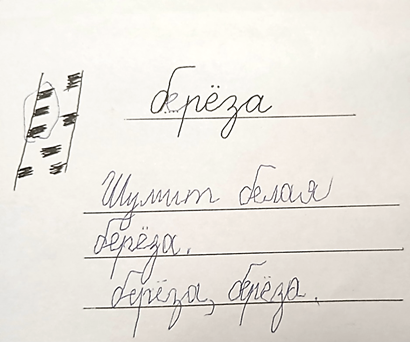 берёза
Шумит белая
берёза.
берёза, берёза.